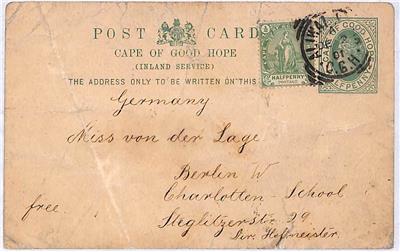 POST CARD
CAPE OF GOOD HOPE
(INLAND SERVICE)
THE ADDRESS ONLY TO BE WRITTEN ON THIS
HALFPENNY
POSTAGE
C.G.H.
GOOD HO
HALFPENNY
Germany
Miss von der Lage
Berlin W
Charlotten-School
free
Steglitzerstr 29
Dir. Hofmeister